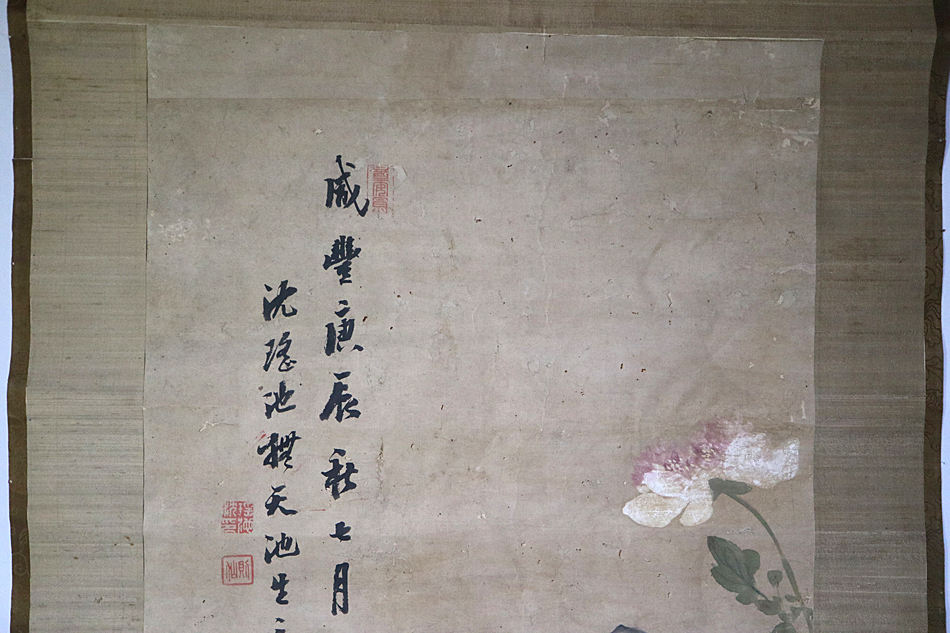 咸豐庚辰秋七月
沈瑤池橅天池生